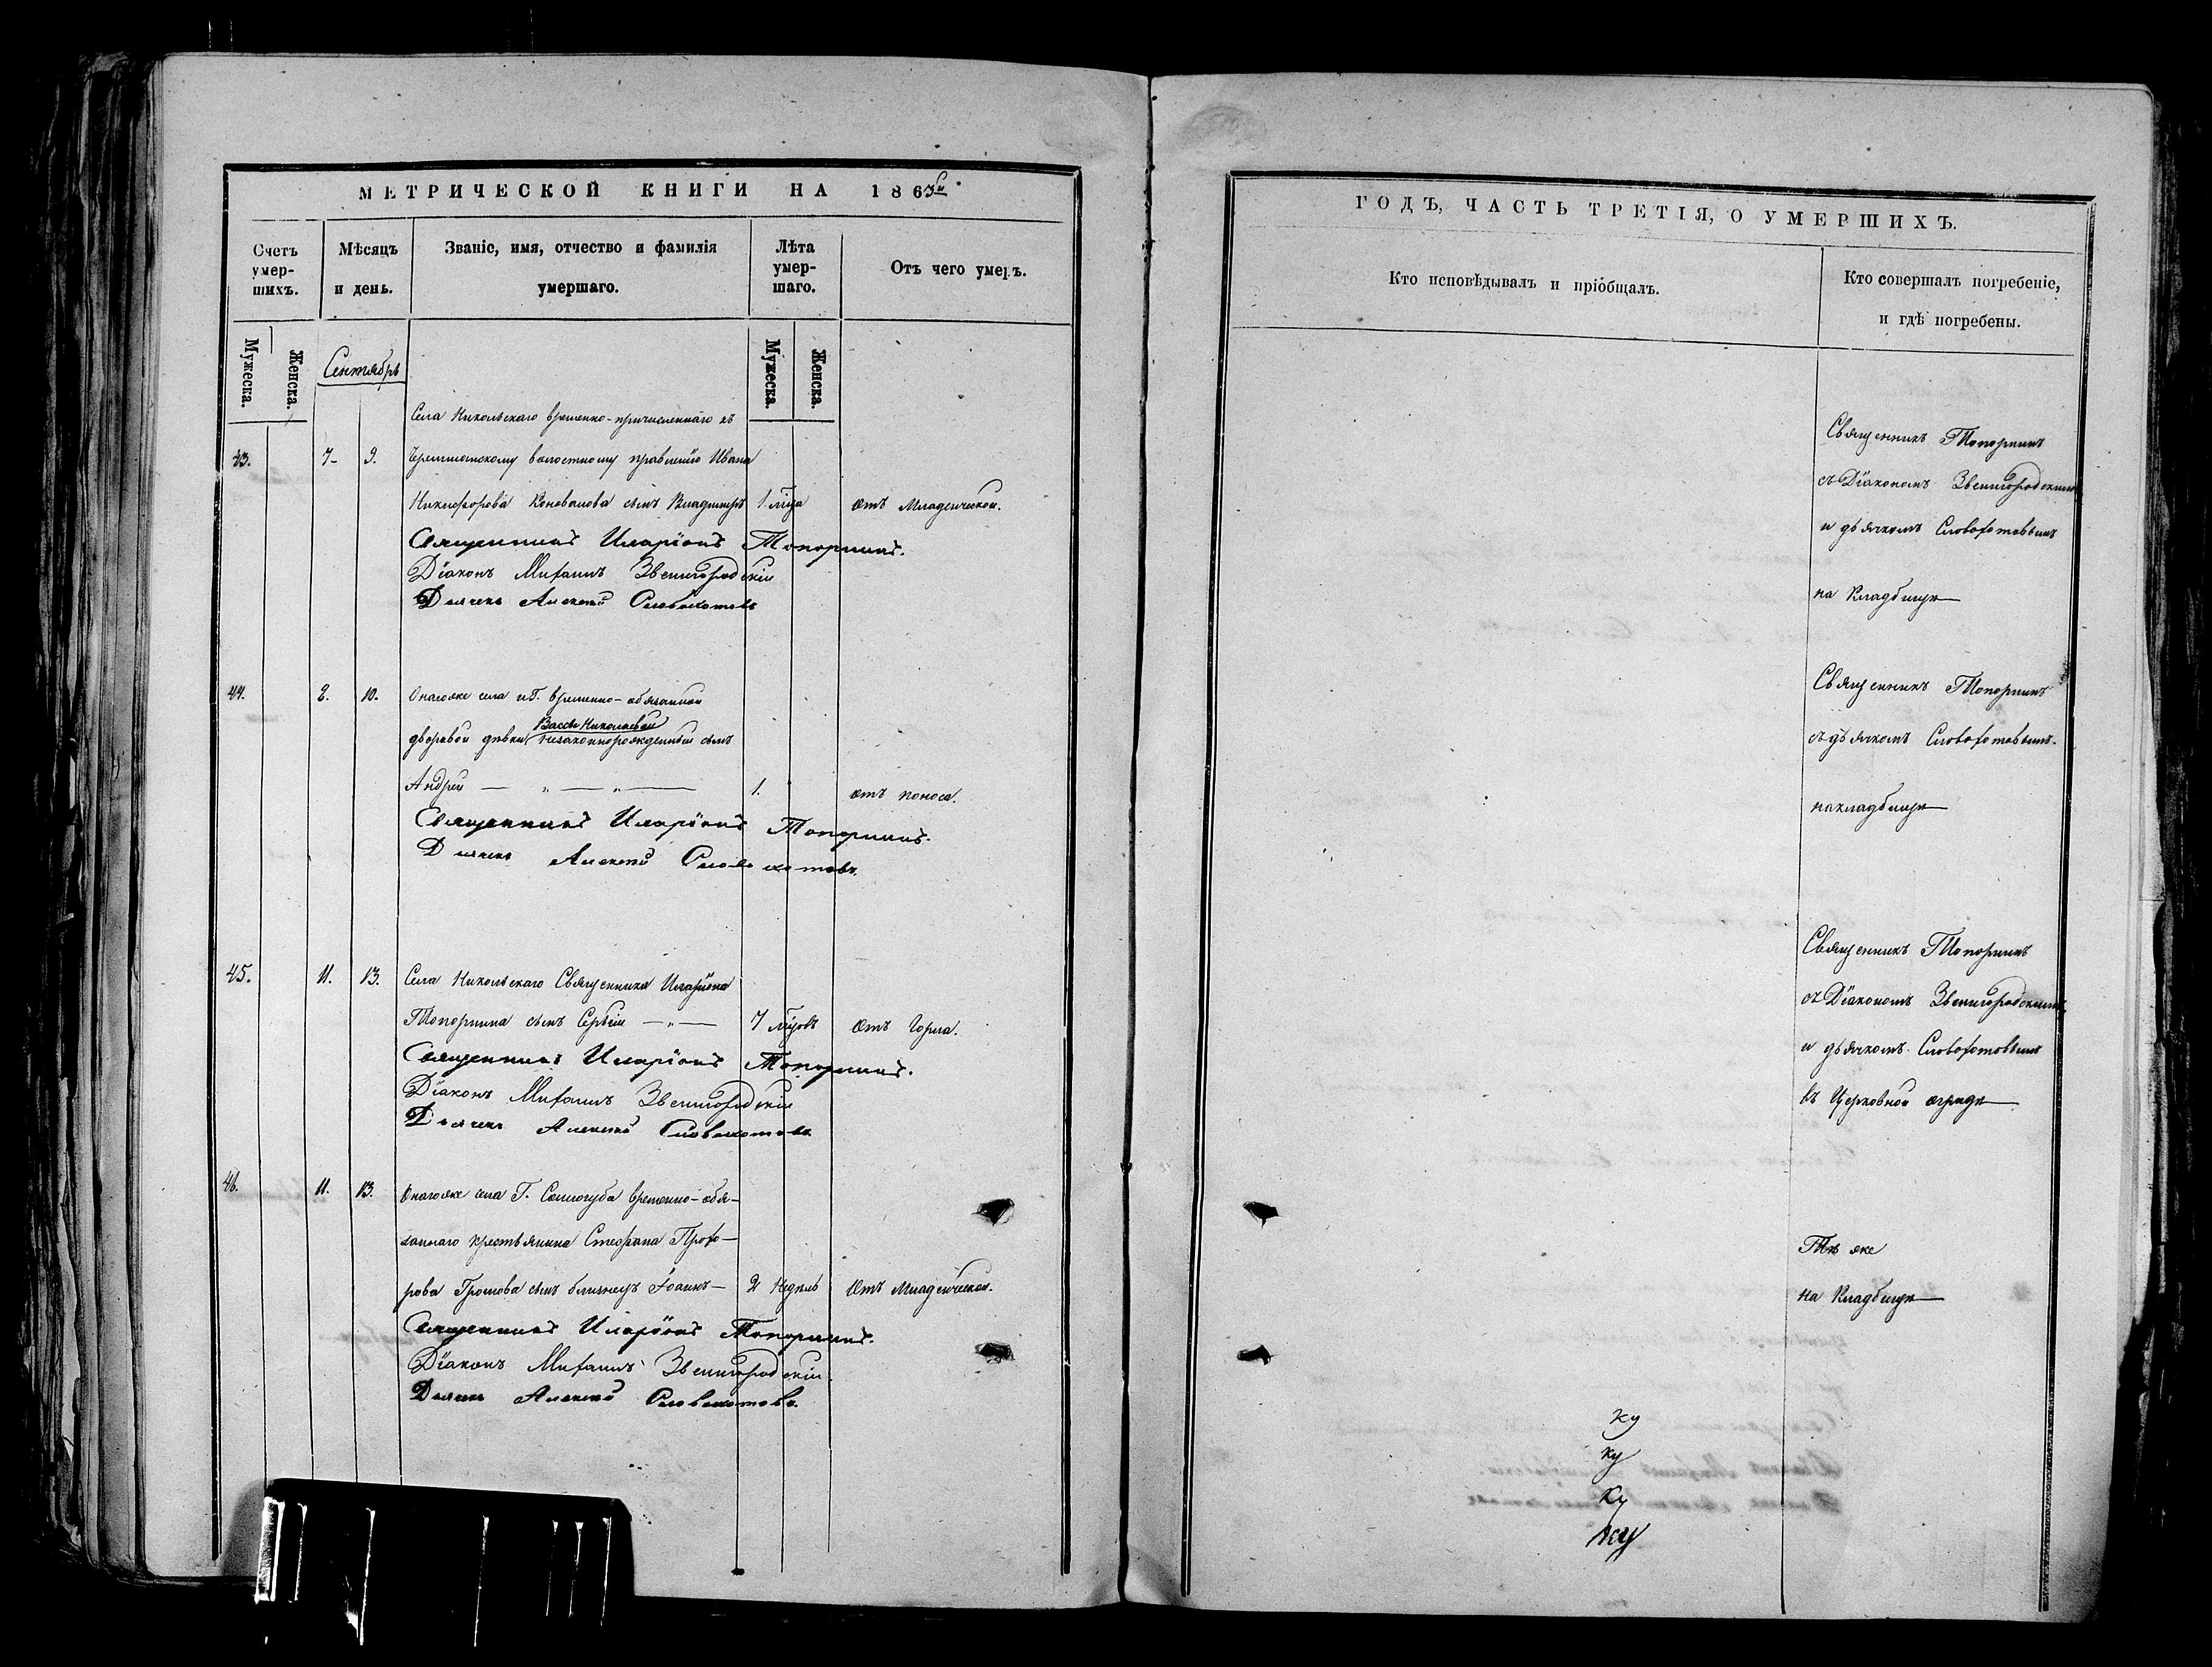 МЕТРИЧЕСКОЙ КНИГИ НА 1863й
Счетъ умер-шихъ.
Мѣсяцъ и день.
Званіе, имя, отчество и фамилія умершаго.
Лѣта умер-шаго.
Отъ чего умеръ.
Мужеска.
Женска.
Сентябрь
Мужеска.
Женска.
Села Никольскаго временно-причисленнаго къ
43. 7. 9. Черемшанскому волостному правленію Ивана
Никифорова Коновалова сынъ Владимиръ 1 года отъ Младенческой.
Священникъ Иларіонъ Топорнинъ.
Діаконъ Михаилъ Звенигородскій
Дьячекъ Алексѣй Словохотовъ
44. 8. 10. Онагоже села г.Г. временно-обязанной
Вассы Николаевой
дворовой дѣвки незаконнорожденный сынъ
Андрей — „ — „ — 1. отъ поноса.
Священникъ Иларіонъ Топорнинъ.
Дьячекъ Алексѣй Словохотовъ.
45. 11. 13. Села Никольскаго Священника Иларіона
Топорнина сынъ Сергій — „ — 7 годовъ отъ Горла.
Священникъ Иларіонъ Топорнинъ.
Діаконъ Михаилъ Звенигородскій
Дьячекъ Алексѣй Словохотовъ
46. 11. 13. Онагоже села Г. Соллогуба временно-обя-
заннаго крестьянина Стефана Прохо-
рова Громова сынъ близнецъ Іоаннъ — 2 недѣль отъ Младенческой.
Священникъ Иларіонъ Топорнинъ.
Діаконъ Михаилъ Звенигородскій.
Дьячекъ Алексѣй Словохотовъ.
ГОДЪ, ЧАСТЬ ТРЕТІЯ, О УМЕРШИХЪ.
Кто исповѣдывалъ и пріобщалъ.
Кто совершалъ погребеніе,
и гдѣ погребены.
Священникъ Топорнинъ
съ Діакономъ Звенигородскимъ
и дьячкомъ Словохотовымъ
на Кладбищѣ
Священникъ Топорнинъ
съ дьячкомъ Словохотовымъ.
на кладбищѣ
Священникъ Топорнинъ
съ Діакономъ Звенигородскимъ
и дьячкомъ Словохотовымъ
въ Церковной оградѣ
Тѣ же
на Кладбищѣ
ку
ку
ку
ку